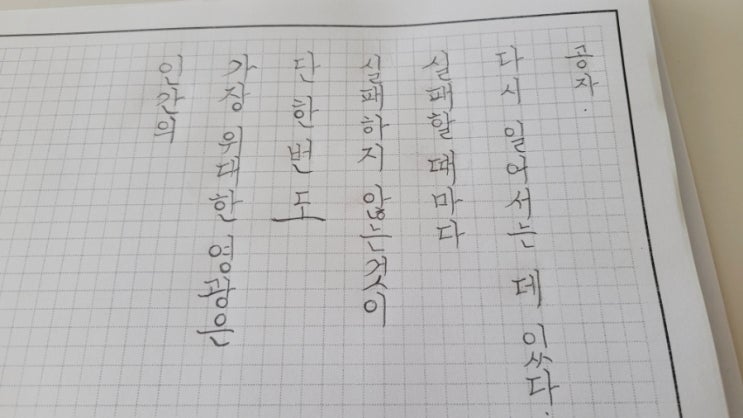 인간의
가장 위대한 영광은
단 한 번도
실패하지 않는 것이
실패할 때마다
다시 일어서는 데 있다.
공자.